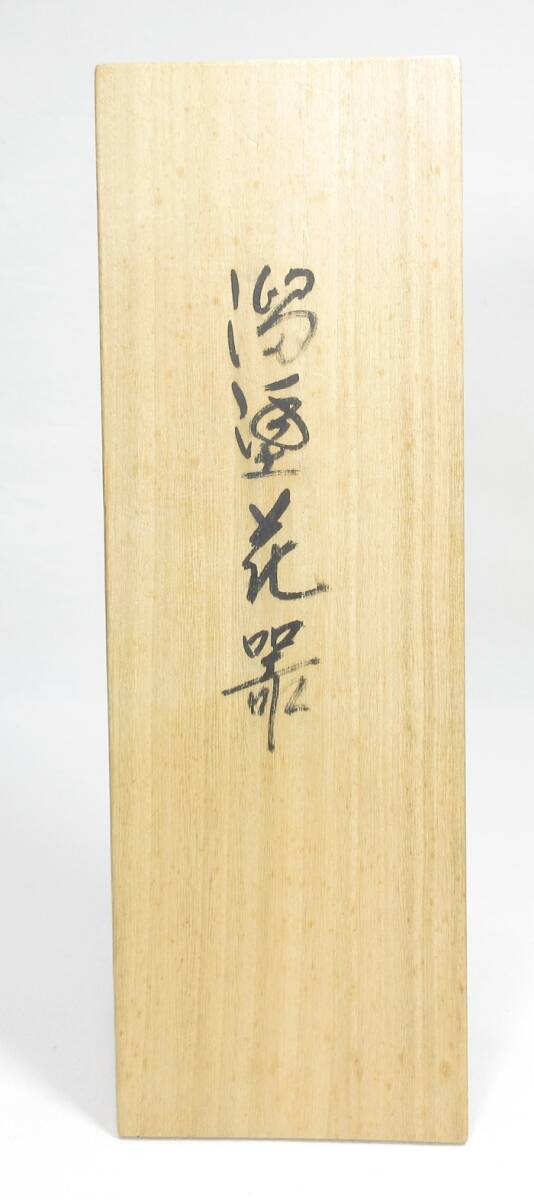 溜塗花器